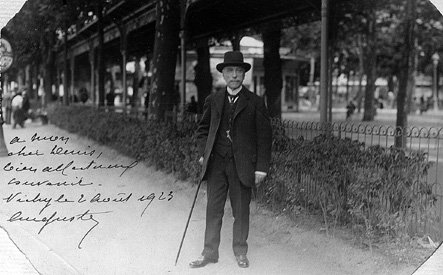 à mon
cher Denis,
bien affectueux
souvenir.
Vichy le 2 Août 1923
Auguste